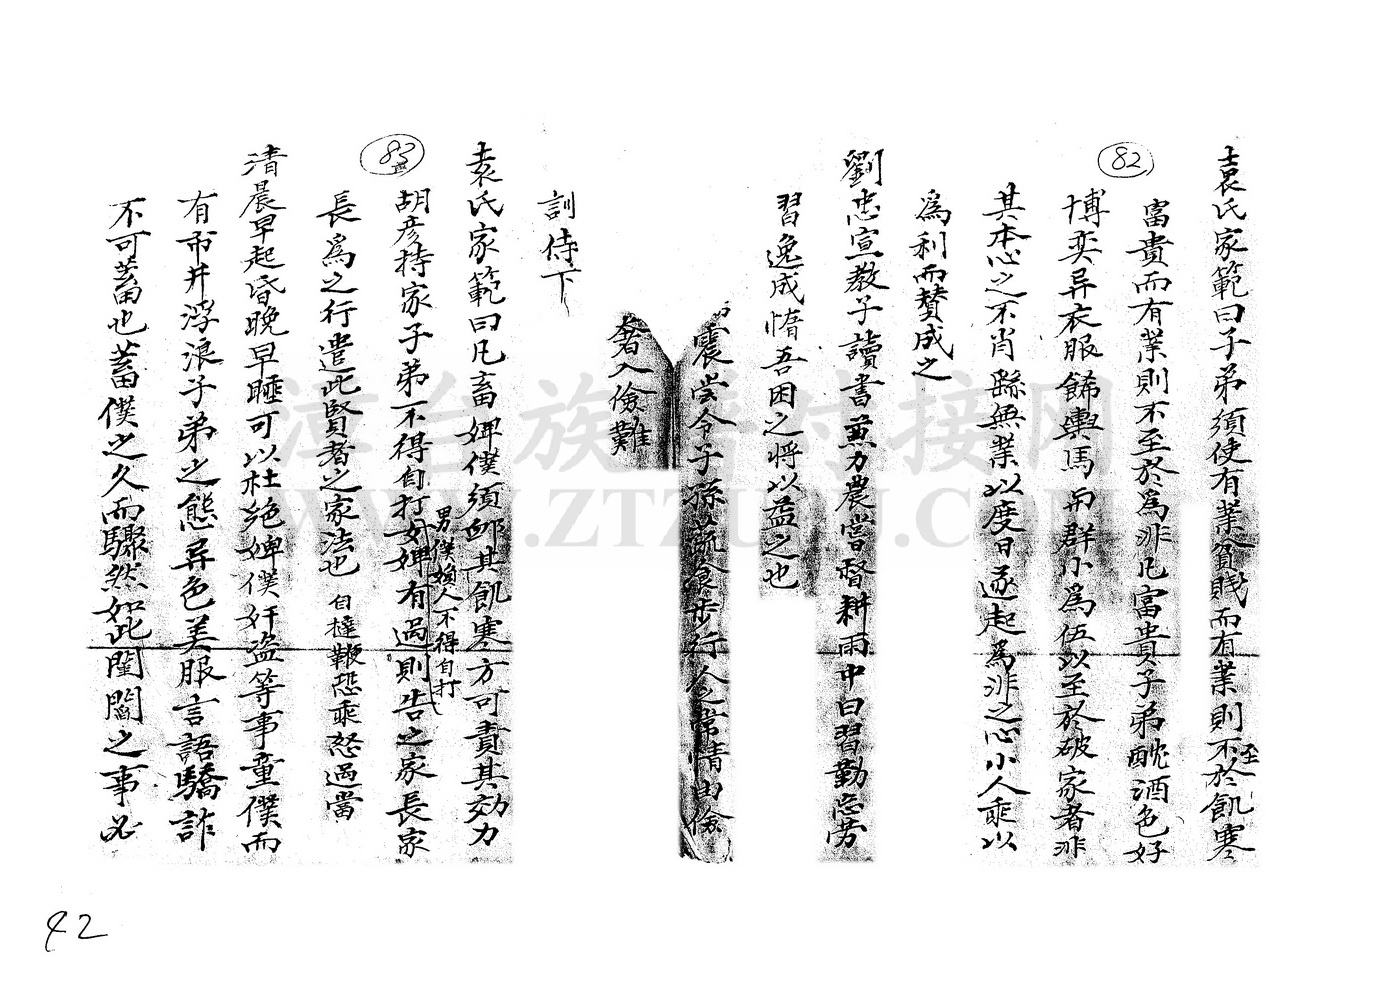 82
袁氏家範曰子弟須使有業貧賤而有業則不至於飢寒
富貴而有業則不至於為非凡富貴子弟酖酒色好
博奕异衣服餙輿馬與群小為伍以至於破家者非
其本心之不肖繇無業以度日遂起為非之心小人乘以
為利而賛成之
劉忠宣教子讀書兼力農嘗督耕雨中曰習勤忘劳
習逸成惰吾困之将以益之也
震嘗令子孫蔬食步行人之常情由儉
奢入儉難
訓侍下
83
袁氏家範曰凡畜婢僕須邺其飢寒方可責其効力
胡彦持家子弟不得自打女婢有過則告之家長家
男僕婦人不得自打
長為之行遣此賢者之家法也 自撻鞭恐乖怒過當
清晨早起昏晚早睡可以杜绝婢僕奸盗等事童僕而
有市井浮浪子弟之態异色美服言語驕詐
不可蓄也蓄僕之久而驟然如此閨閫之事必
42
漳台族谱对接网
WWW.ZTZUPU.COM